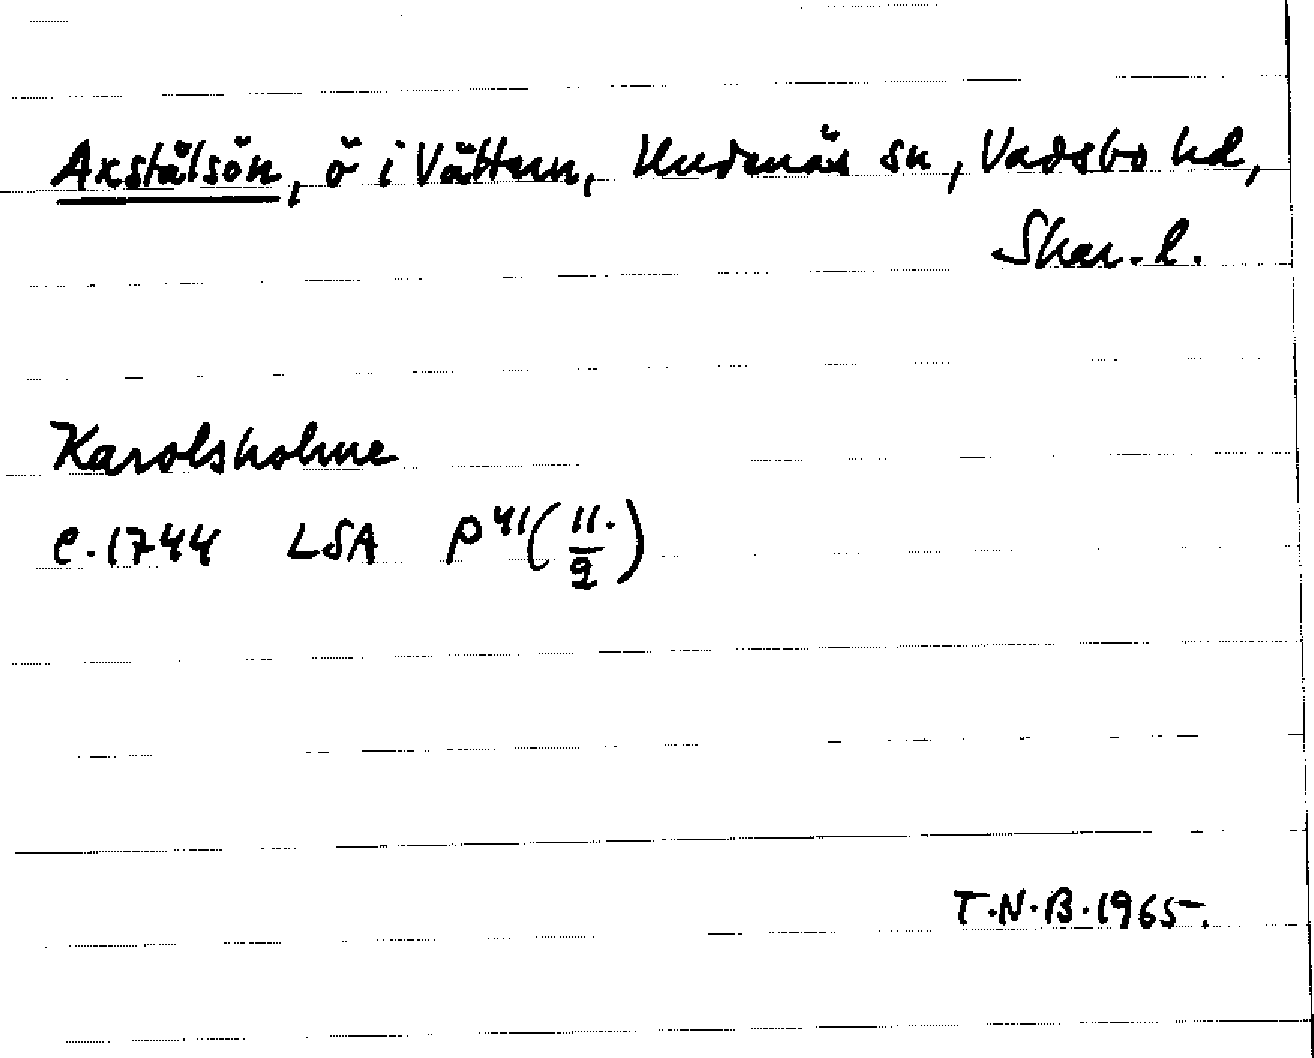 Axstålsön, ö i Vättern, Undenäs sn, Vadsbo hd,
Skar. l.
Karolsholme
c. 1744 LSA P 41 (11./2)
T.N.B. 1965.